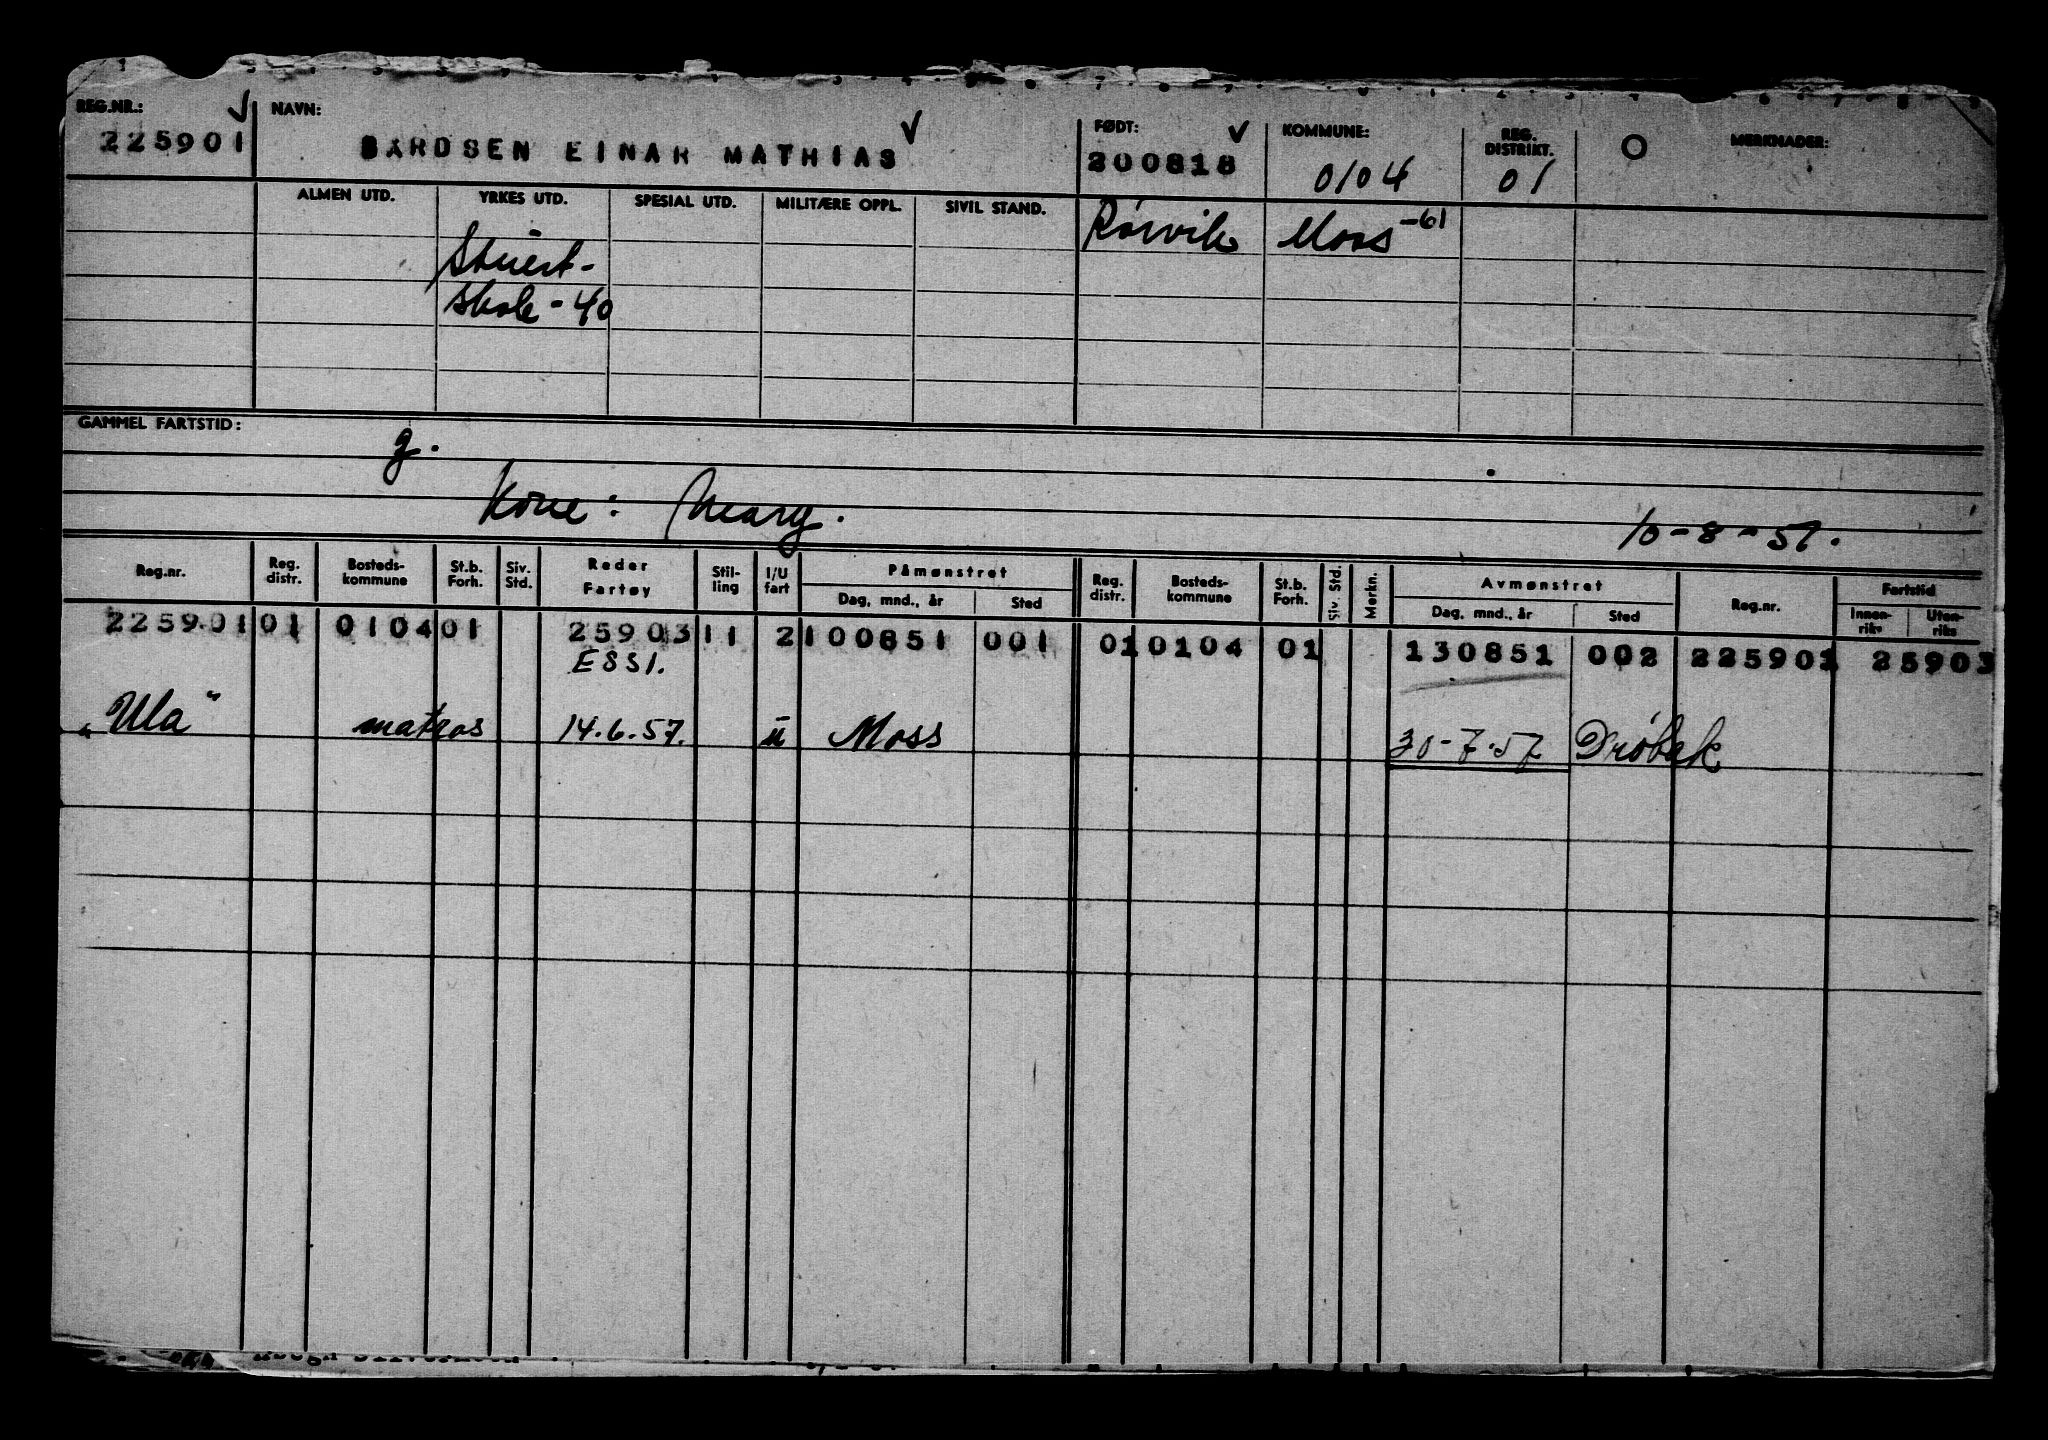 REG.NR.: NAVN: FØDT: KOMMUNE: REG. DISTRIKT. MERKNADER:
225901 BÅRDSEN EINAR MATHIAS 200818 0104 01
ALMEN UTD. YRKES UTD. SPESIAL UTD. MILITÆRE OPPL. SIVIL STAND. Rørvik Moss -61
Stuert-
skole - 40
GAMMEL FARTSTID: g.
Kone: Mary. 10-8-51.
Reg.nr. Reg. distr. Bosteds-kommune St.b. Forh. Siv. Std. Reder Fartøy Stil-ling I/U fart Påmønstret Reg. distr. Bosteds-kommune St.b. Forh. Siv. Std. Merkn. Avmønstret Reg.nr. Fartstid
Dag, mnd., år Sted Dag, mnd., år Sted Innen-riks Uten-riks
225901 01 0104 01 25903 11 2 100851 001 01 0104 01 130851 002 225901 25903
ESSI.
"Ula" matros 14.6.57. u Moss 30-7-57 Drøbak